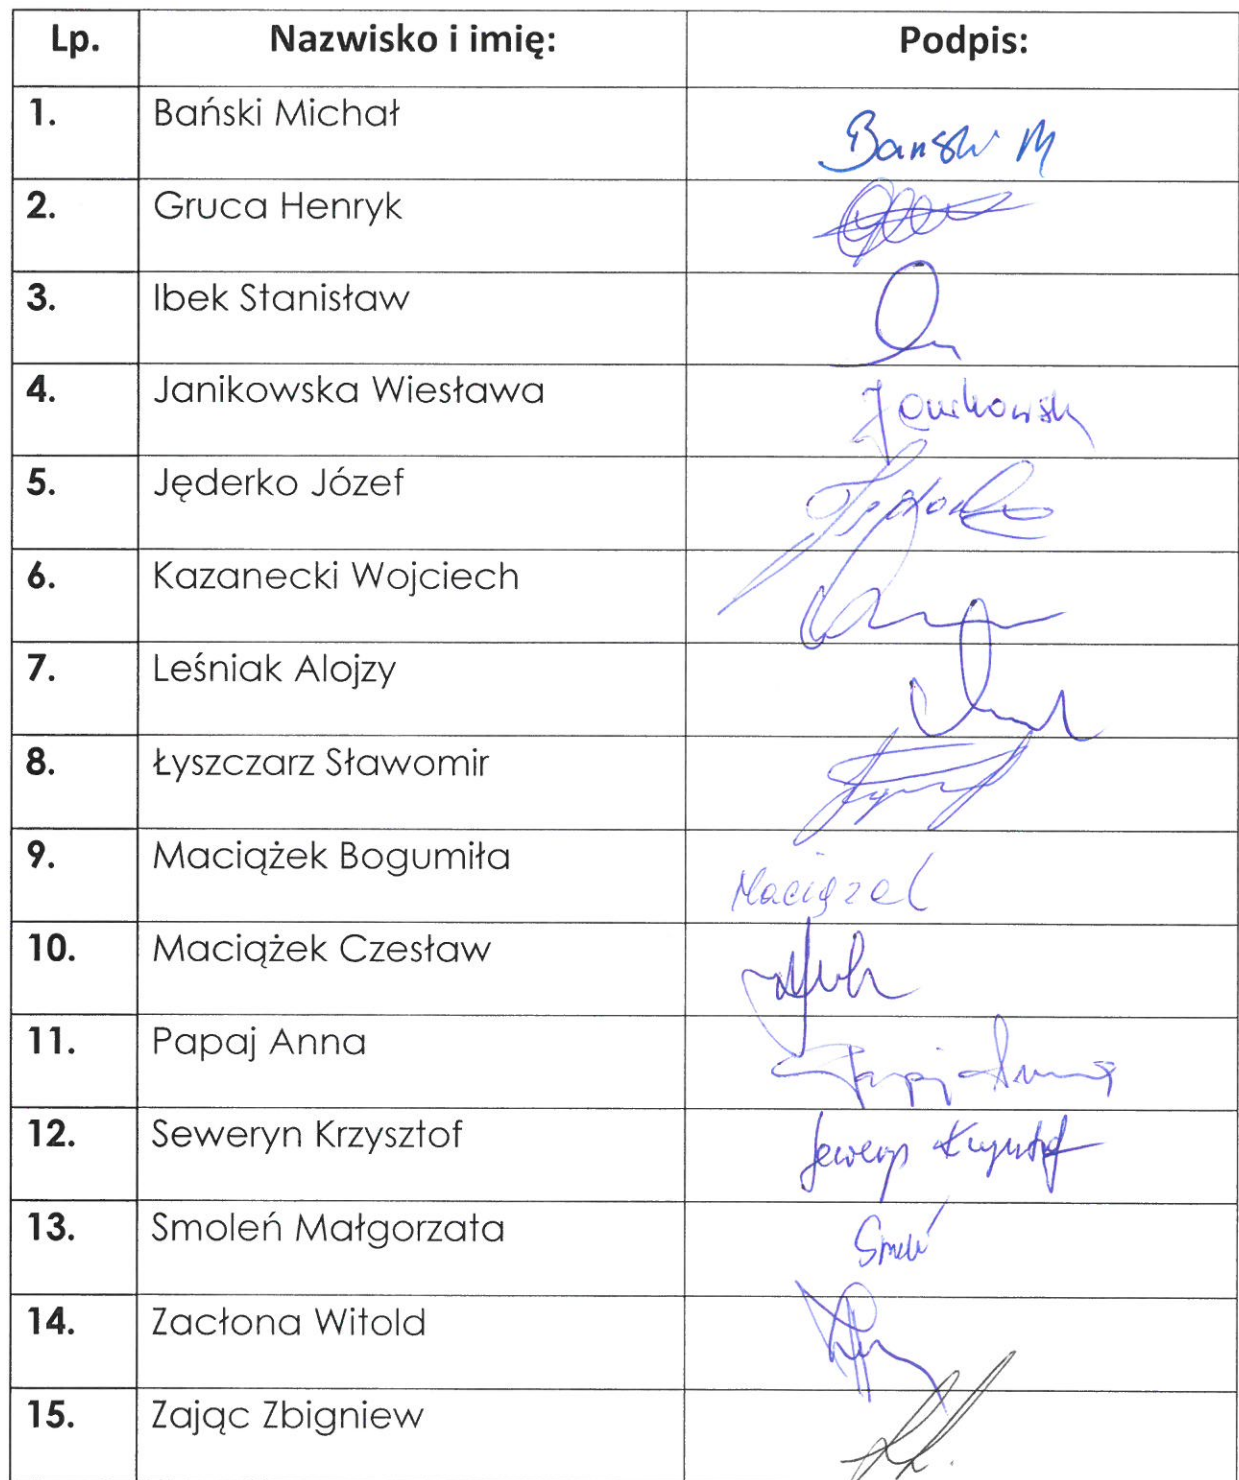 Lp. Nazwisko i imię: Podpis:
1. Bański Michał Bański M
2. Gruca Henryk
3. Ibek Stanisław
4. Janikowska Wiesława Janikowsk
5. Jęderko Józef
6. Kazanecki Wojciech
7. Leśniak Alojzy
8. Łyszczarz Sławomir
9. Maciążek Bogumiła Maciążek
10. Maciążek Czesław
11. Papaj Anna Papaj Anna
12. Seweryn Krzysztof Seweryn Krzysztof
13. Smoleń Małgorzata Smoleń
14. Zacłona Witold
15. Zając Zbigniew